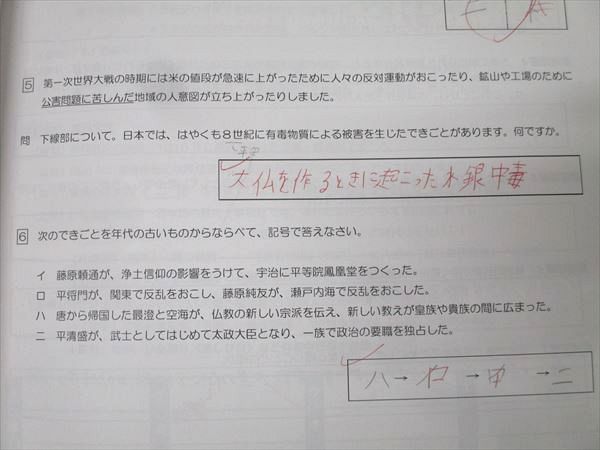 5 第一次世界大戦の時期には米の値段が急速に上がったために人々の反対運動がおこったり、鉱山や工場のために
公害問題に苦しんだ地域の人意図が立ち上がったりしました。
問 下線部について。日本では、はやくも8世紀に有毒物質による被害を生じたできごとがあります。何ですか。
大仏を作るときに起こった水銀中毒
6 次のできごとを年代の古いものからならべて、記号で答えなさい。
イ 藤原頼通が、浄土信仰の影響をうけて、宇治に平等院鳳凰堂をつくった。
ロ 平将門が、関東で反乱をおこし、藤原純友が、瀬戸内海で反乱をおこした。
ハ 唐から帰国した最澄と空海が、仏教の新しい宗派を伝え、新しい教えが皇族や貴族の間に広まった。
ニ 平清盛が、武士としてはじめて太政大臣となり、一族で政治の要職を独占した。
ハ → ロ → イ → ニ